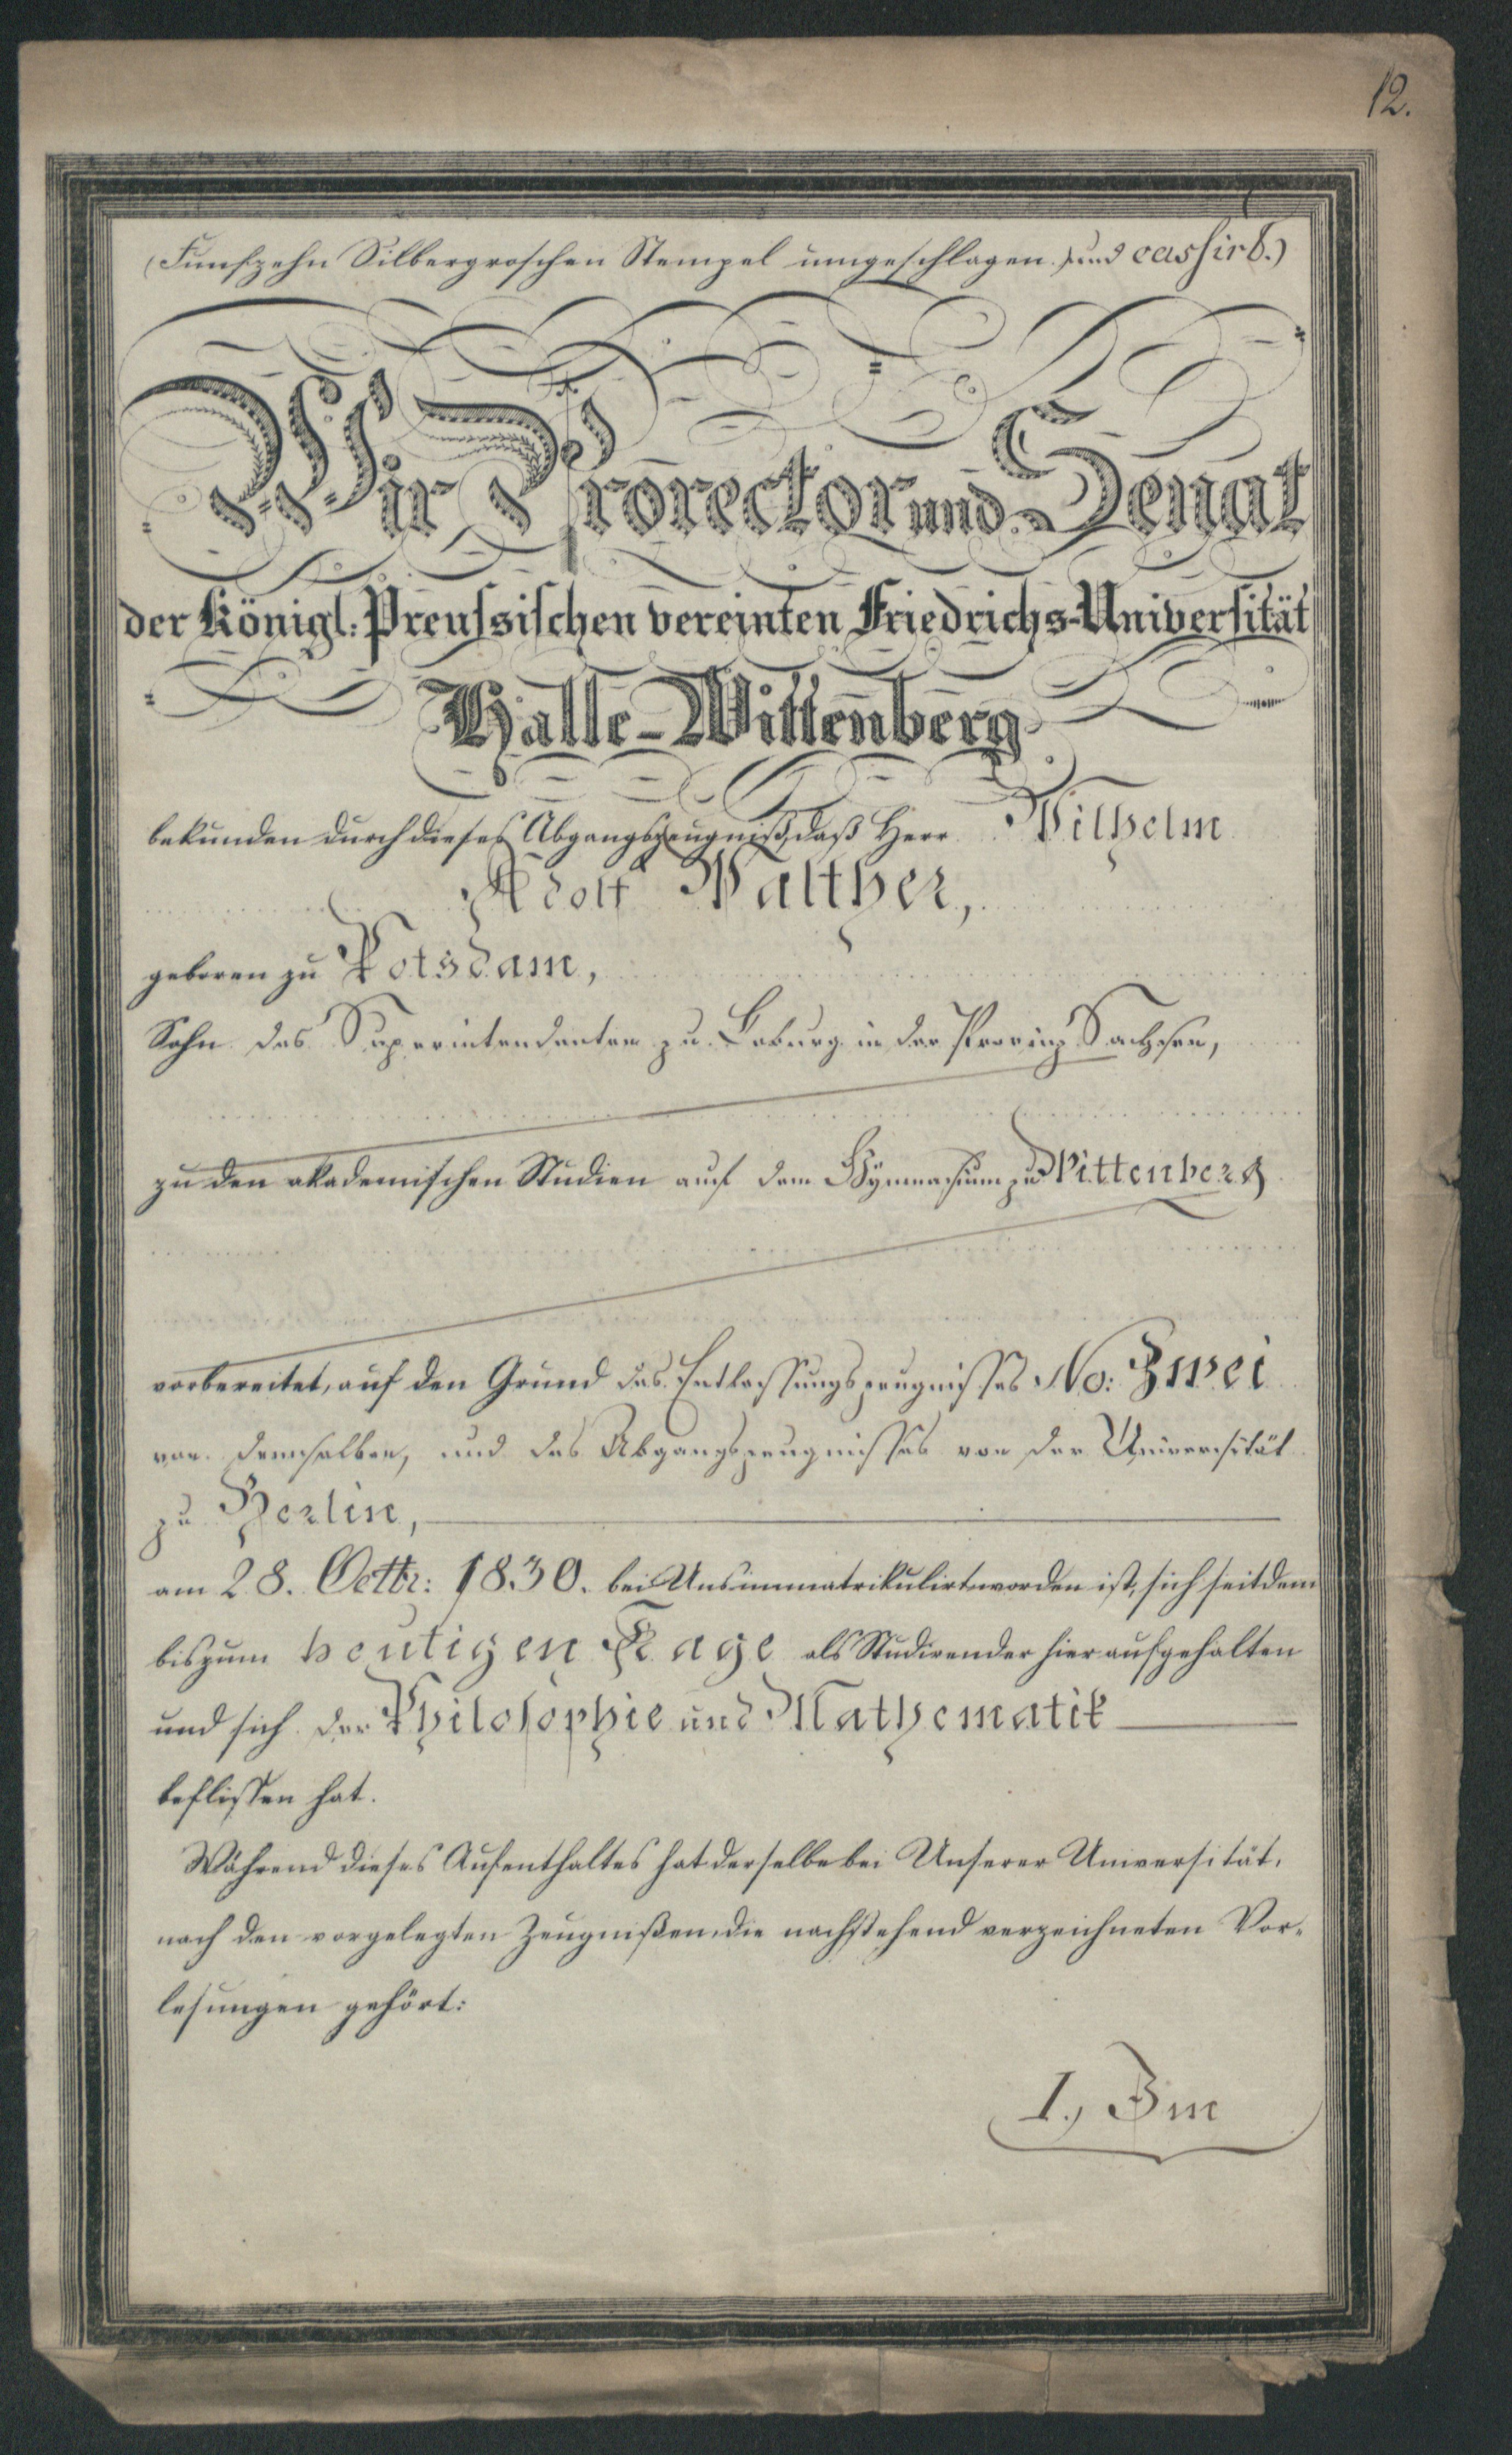 12.
(Funfzehn Silbergroschen Stempel umgeschlagen.) und cassirt.)
Wir Prorector und Senat
der Königl: Preussischen vereinten Friedrichs-Universität
Halle-Wittenberg
bekunden durch dieses Abgangszeugniß, daß Herr Wilhelm
Adolf Walther,
geboren zu Potsdam,
Sohn des Superintendenten zu Loburg in der Provinz Sachsen,
zu den akademischen Studien auf dem Gymnasium zu Wittenberg
vorbereitet, auf den Grund des Entlassungszeugnisses No: Zwei
von demselben, und des Abgangszeugnisses von der Universität
zu Berlin,
am 28. Octbr: 1830. bei Uns immatrikulirt worden ist, sich seitdem
bis zum heutigen Tage als Studirender hier aufgehalten
und sich der Philosophie und Mathematik
beflissen hat.
Während dieses Aufenthaltes hat derselbe bei Unserer Universität,
nach den vorgelegten Zeugnißen, die nachstehend verzeichneten Vor-
lesungen gehört:
I., Im